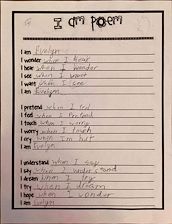 I am poem
I am Evelyn
I wonder what I hear
I hear when I wonder
I see when I want
I want when I see
I am Evelyn
I pretend when I feel
I feel when I pretend
I touch when I worry
I worry when I touch
I cry when I'm hurt
I am Evelyn
I understand when I say
I say when I understand
I dream when I try
I try when I dream
I hope when I wonder
I am Evelyn